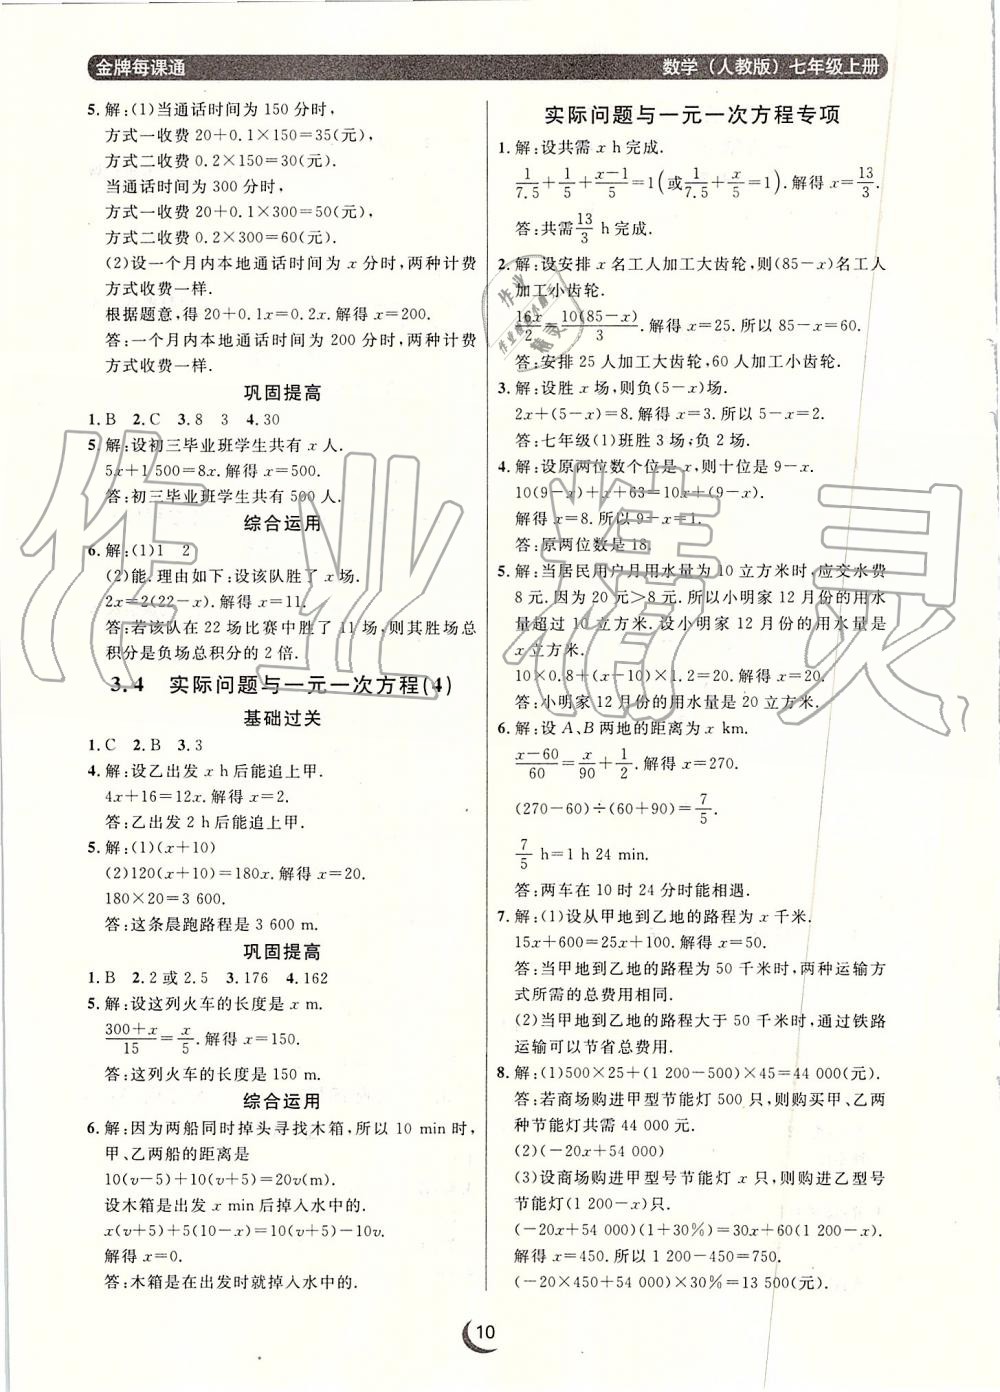 金牌每课通
数学(人教版)七年级上册
5.解:(1)当通话时间为 150 分时,
方式一收费 20+0.1×150=35(元),
方式二收费 0.2×150=30(元).
当通话时间为 300 分时,
方式一收费 20+0.1×300=50(元),
方式二收费 0.2×300=60(元).
(2)设一个月内本地通话时间为 x 分时,两种计费
方式收费一样.
根据题意,得 20+0.1x=0.2x.解得 x=200.
答:一个月内本地通话时间为 200 分时,两种计费
方式收费一样.
巩固提高
1.B 2.C 3.8 3 4.30
5 解:设初三毕业班学生共有 x 人.
5x+1 500=8x.解得 x=500.
答:初三毕业班学生共有 500 人.
综合运用
6.解:(1)1 2
(2)能.理由如下:设该队胜了 x 场.
2x=2(22-x).解得 x=11.
答:若该队在 22 场比赛中胜了 11 场,则其胜场总
积分是负场总积分的 2 倍.
3.4 实际问题与一元一次方程(4)
基础过关
1.C 2.B 3.3
4.解:设乙出发 x h后能追上甲.
4x+16=12x.解得 x=2.
答:乙出发 2 h后能追上甲.
5.解:(1)(x+10)
(2)120(x+10)=180x.解得 x=20.
180×20=3 600.
答:这条晨跑路程是 3 600 m.
巩固提高
1.B 2.2 或 2.5 3.176 4.162
5.解:设这列火车的长度是 x m.
(300+x)/15=x/5.解得 x=150.
答:这列火车的长度是 150 m.
综合运用
6.解:因为两船同时掉头寻找木箱,所以 10 min时,
甲、乙两船的距离是
10(v-5)+10(v+5)=20v(m).
设木箱是 x min后掉入水中的.
x(v+5)+5(10-x)=10(v+5)-10v.
解得 x=0.
答:木箱是在出发时就掉入水中的.
实际问题与一元一次方程专项
1.解:设共需 x h完成.
1/7.5+1/5+(x-1)/5=1(或1/7.5+x/5=1).解得 x=13/3.
答:共需13/3 h完成.
2.解:设安排 x 名工人加工大齿轮,则(85-x)名工人
加工小齿轮.
16x/2 10(85-x)/3.解得 x=25.所以 85-x=60.
答:安排 25 人加工大齿轮,60 人加工小齿轮.
3.解:设胜 x 场,则负(5-x)场.
2x+(5-x)=8.解得 x=3.所以 5-x=2.
答:七年级(1)班胜 3 场,负 2 场.
4.解:设原两位数个位是 x,则十位是 9-x.
10(9-x)+x+63=10x+(9-x).
解得 x=8.所以 9-x=1.
答:原两位数是 18.
5.解:当居民用户月用水量为 10 立方米时,应交水费
8 元.因为 20 元>8 元.所以小明家 12 月份的用水
量超过 10 立方米.设小明家 12 月份的用水量是
x 立方米.
10×0.8+(x-10)×1.2=20.解得 x=20.
答:小明家 12 月份的用水量是 20 立方米.
6.解:设 A、B 两地的距离为 x km.
(x-60)/60=x/90+1/2.解得 x=270.
(270-60)÷(60+90)=7/5.
7/5 h=1 h 24 min.
答:两车在 10 时 24 分时能相遇.
7.解:(1)设从甲地到乙地的路程为 x 千米.
15x+600=25x+100.解得 x=50.
答:当甲地到乙地的路程为 50 千米时,两种运输方
式所需的总费用相同.
(2)当甲地到乙地的路程大于 50 千米时,通过铁路
运输可以节省总费用.
8.解:(1)500×25+(1 200-500)×45=44 000(元).
答:若商场购进甲型节能灯 500 只,则购买甲、乙两
种节能灯共需 44 000 元.
(2)(-20x+54 000)
(3)设商场购进甲型号节能灯 x 只,则购进乙型号
节能灯(1 200-x)只.
(-20x+54 000)(1+30%)=30x+60(1 200-x).
解得 x=450.所以 1 200-450=750.
(-20×450+54 000)×30%=13 500(元).
10
作业精灵